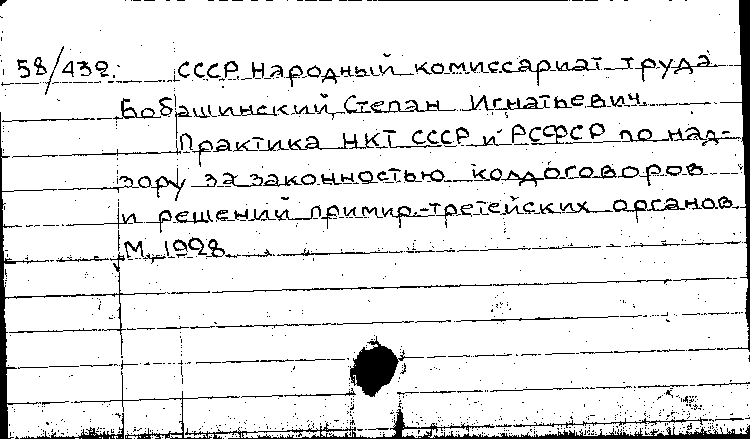 58/432. СССР. Народный комиссариат труда.
Бобашинский, Степан Игнатьевич.
Практика НКТ СССР и РСФСР по над-
зору за законностью колдоговоров
и решений примир.-третейских органов.
М., 1928.